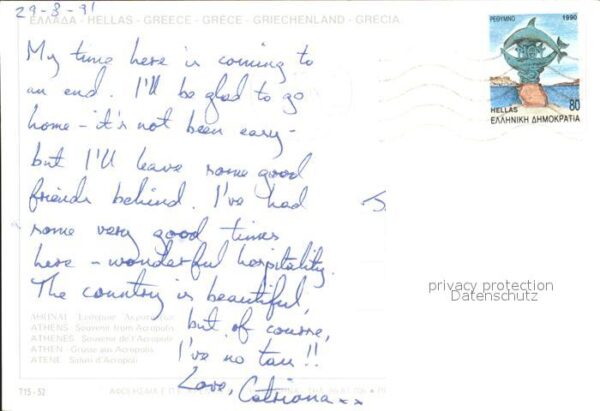 29-8-91
ΕΛΛΑΔΑ - HELLAS - GREECE - GRÈCE - GRIECHENLAND - GRECIA
My time here is coming to
an end. I'll be glad to go
home - it's not been easy -
but I'll leave some good
friends behind. I've had
some very good times
here - wonderful hospitality.
The country is beautiful,
but of course,
I've no tan!!
Love, Catriona xx
ΡΕΘΥΜΝΟ 1990
80
HELLAS
ΕΛΛΗΝΙΚΗ ΔΗΜΟΚΡΑΤΙΑ
privacy protection
Datenschutz
ΑΘΗΝΑΙ
ATHENS - Souvenir from Acropolis
ATHENES - Souvenir de l'Acropole
ATHEN - Grüsse aus Akropolis
ATENE - Saluti d'Acropoli
T15 - 52